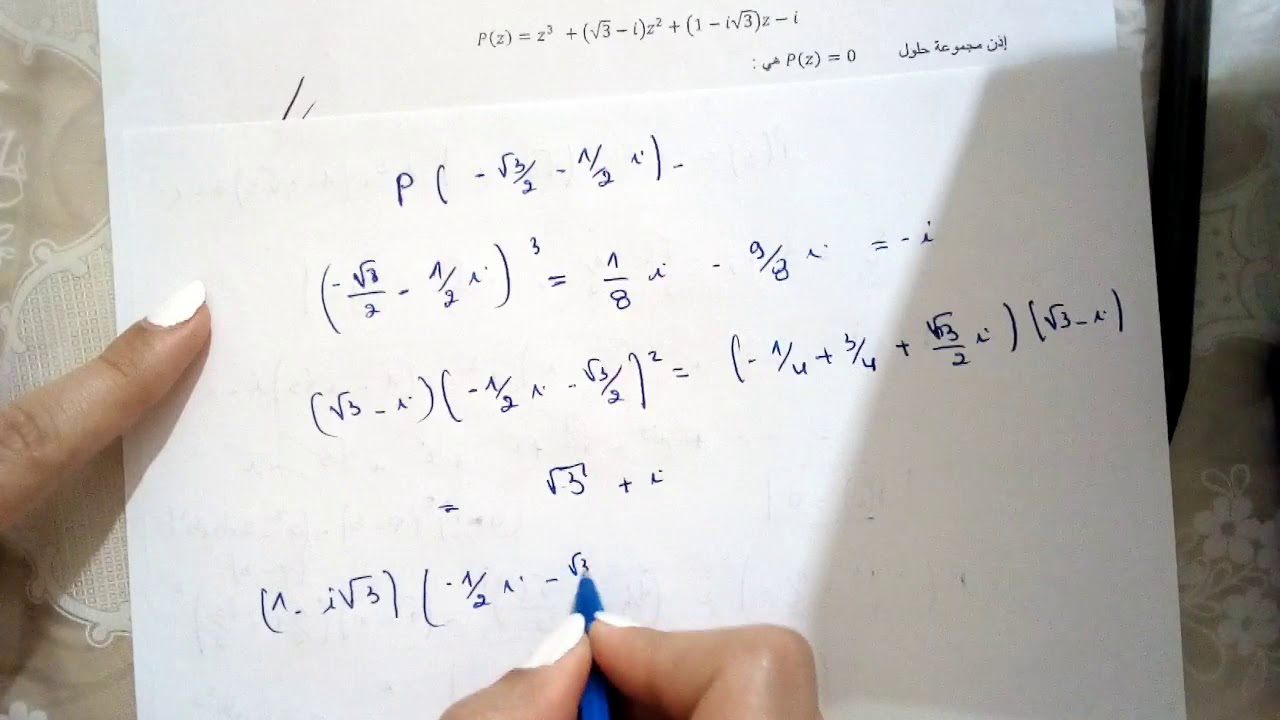 P(z) = z³ + (√3 − i)z² + (1 − i√3)z − i
إذن مجموعة حلول P(z) = 0 هي :
P ( - √3/2 - 1/2 i ) -
( -√3/2 - 1/2 i )³ = 1/8 i - 9/8 i = - i
(√3 - i) ( - 1/2 i - √3/2 )² = ( - 1/4 + 3/4 + √3/2 i ) (√3 - i)
= √3 + i
(1 - i√3) ( - 1/2 i - √3